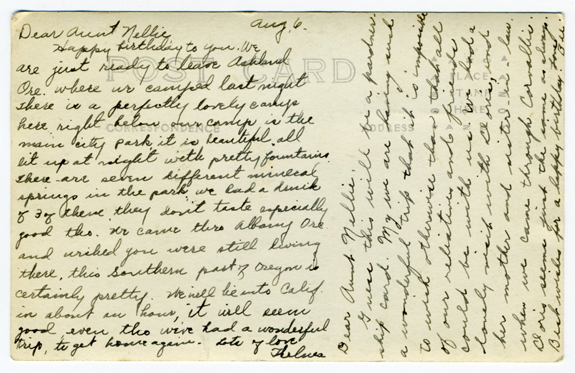 Aug. 6.
Dear Aunt Nellie,
Happy birthday to you. We
are just ready to leave Ashland
Ore. where we camped last night
There is a perfectly lovely camp
here right below our camp is the
main city park it is beautiful, all
lit up at night with pretty fountains
there are seven different mineral
springs in the park, we had a drink
of 3 of them, they don't taste especially
good tho. We came thro Albany Ore
and wished you were still living
there, this Southern part of Oregon is
certainly pretty. We will be into Calif
in about an hour, it will seem
good, even tho we've had a wonderful
trip, to get home again. Lots of love
Thelma
Dear Aunt Nellie:
Guess this will be a partner-
ship card. My we are having such
a wonderful trip that it is impossible
to wish otherwise than that all
of our relatives and friends
could be with us. We had a
lovely visit with and
her mother and sister-in-law
when we came through Corvallis.
seems just the same as always.
Best wishes for a happy birthday from
POST CARD
CORRESPONDENCE
ADDRESS
PLACE
STAMP
HERE